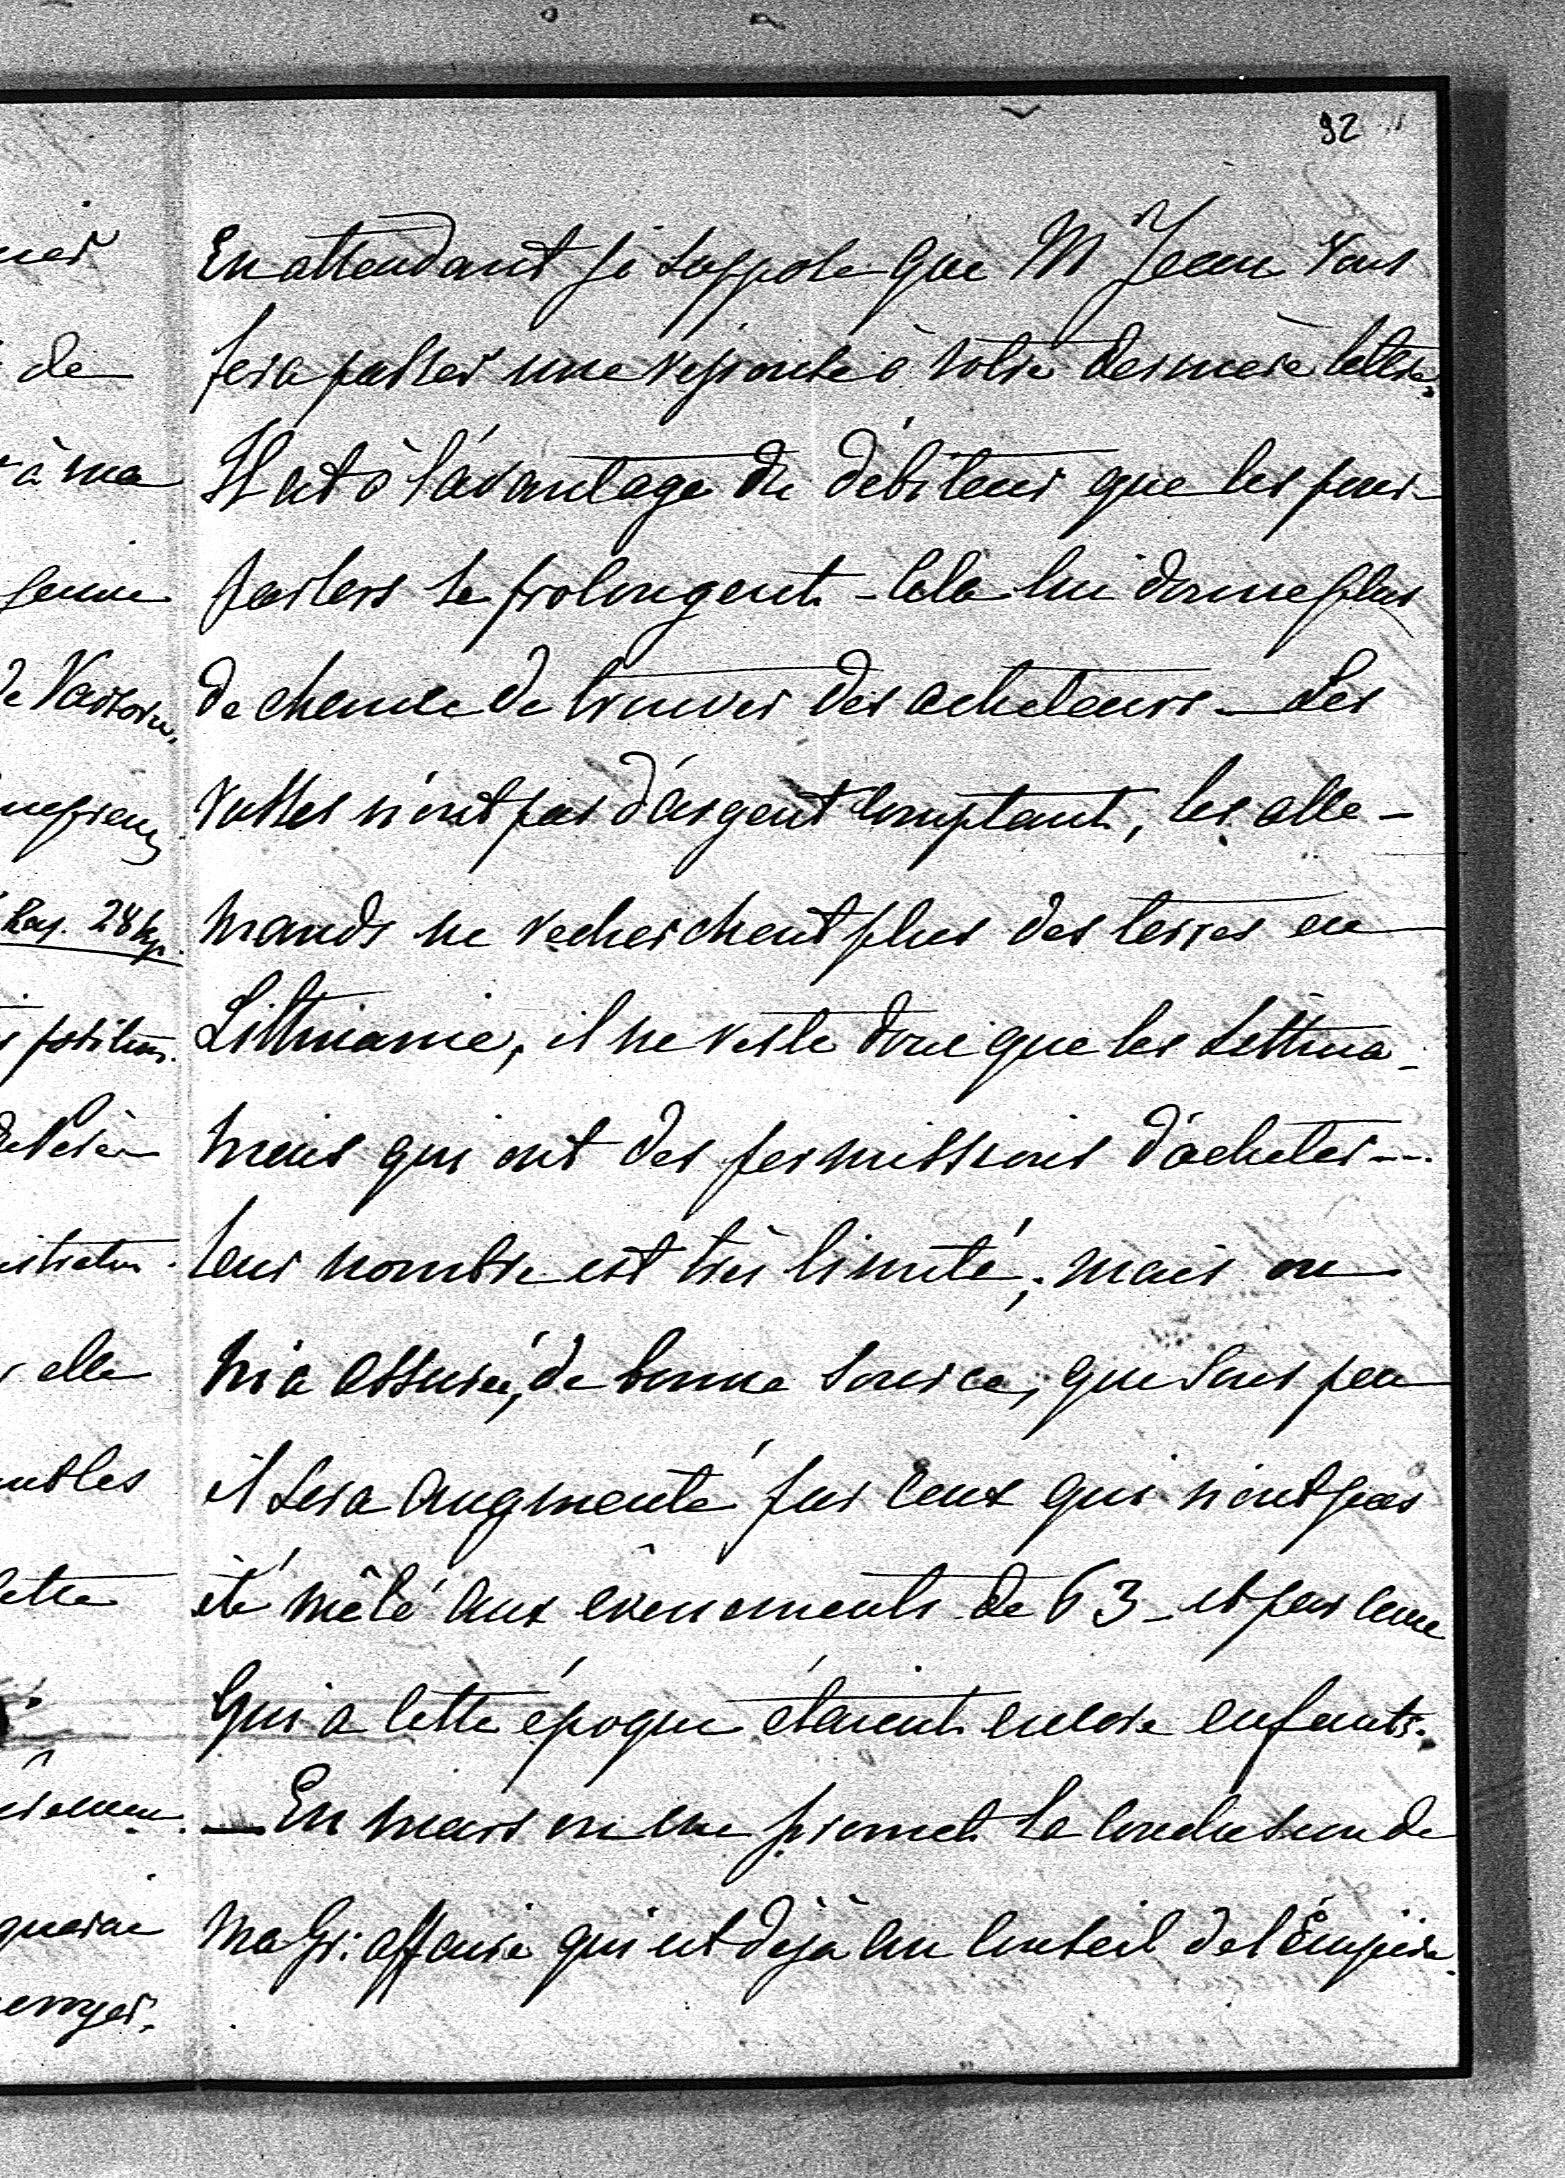 92
En attendant je suppose que Mr Jean vous
fera passer une réponse à votre dernière lettre.
Il est à l'avantage du débiteur que les pour-
parlers se prolongent - cela lui donne plus
de chance de trouver des acheteurs - Les
russes n'ont pas d'argent comptant, les alle-
mands ne recherchent plus des terres en
Littuanie, il ne reste donc que les Littua-
niens qui ont des permissions d'acheter --
leur nombre est très limité; mais on
m'a assuré, de bonne source, que sous peu
il sera augmenté par ceux qui n'ont pas
été mêlé aux évènements de 63 - et par ceux
qui a cette époque étaient encore enfants.
— En mars on me promet la conclusion de
ma gr: affaire qui est déjà au Conseil de l'Émpire.
de
à ma
de Varsovie,
28 kp.
elle